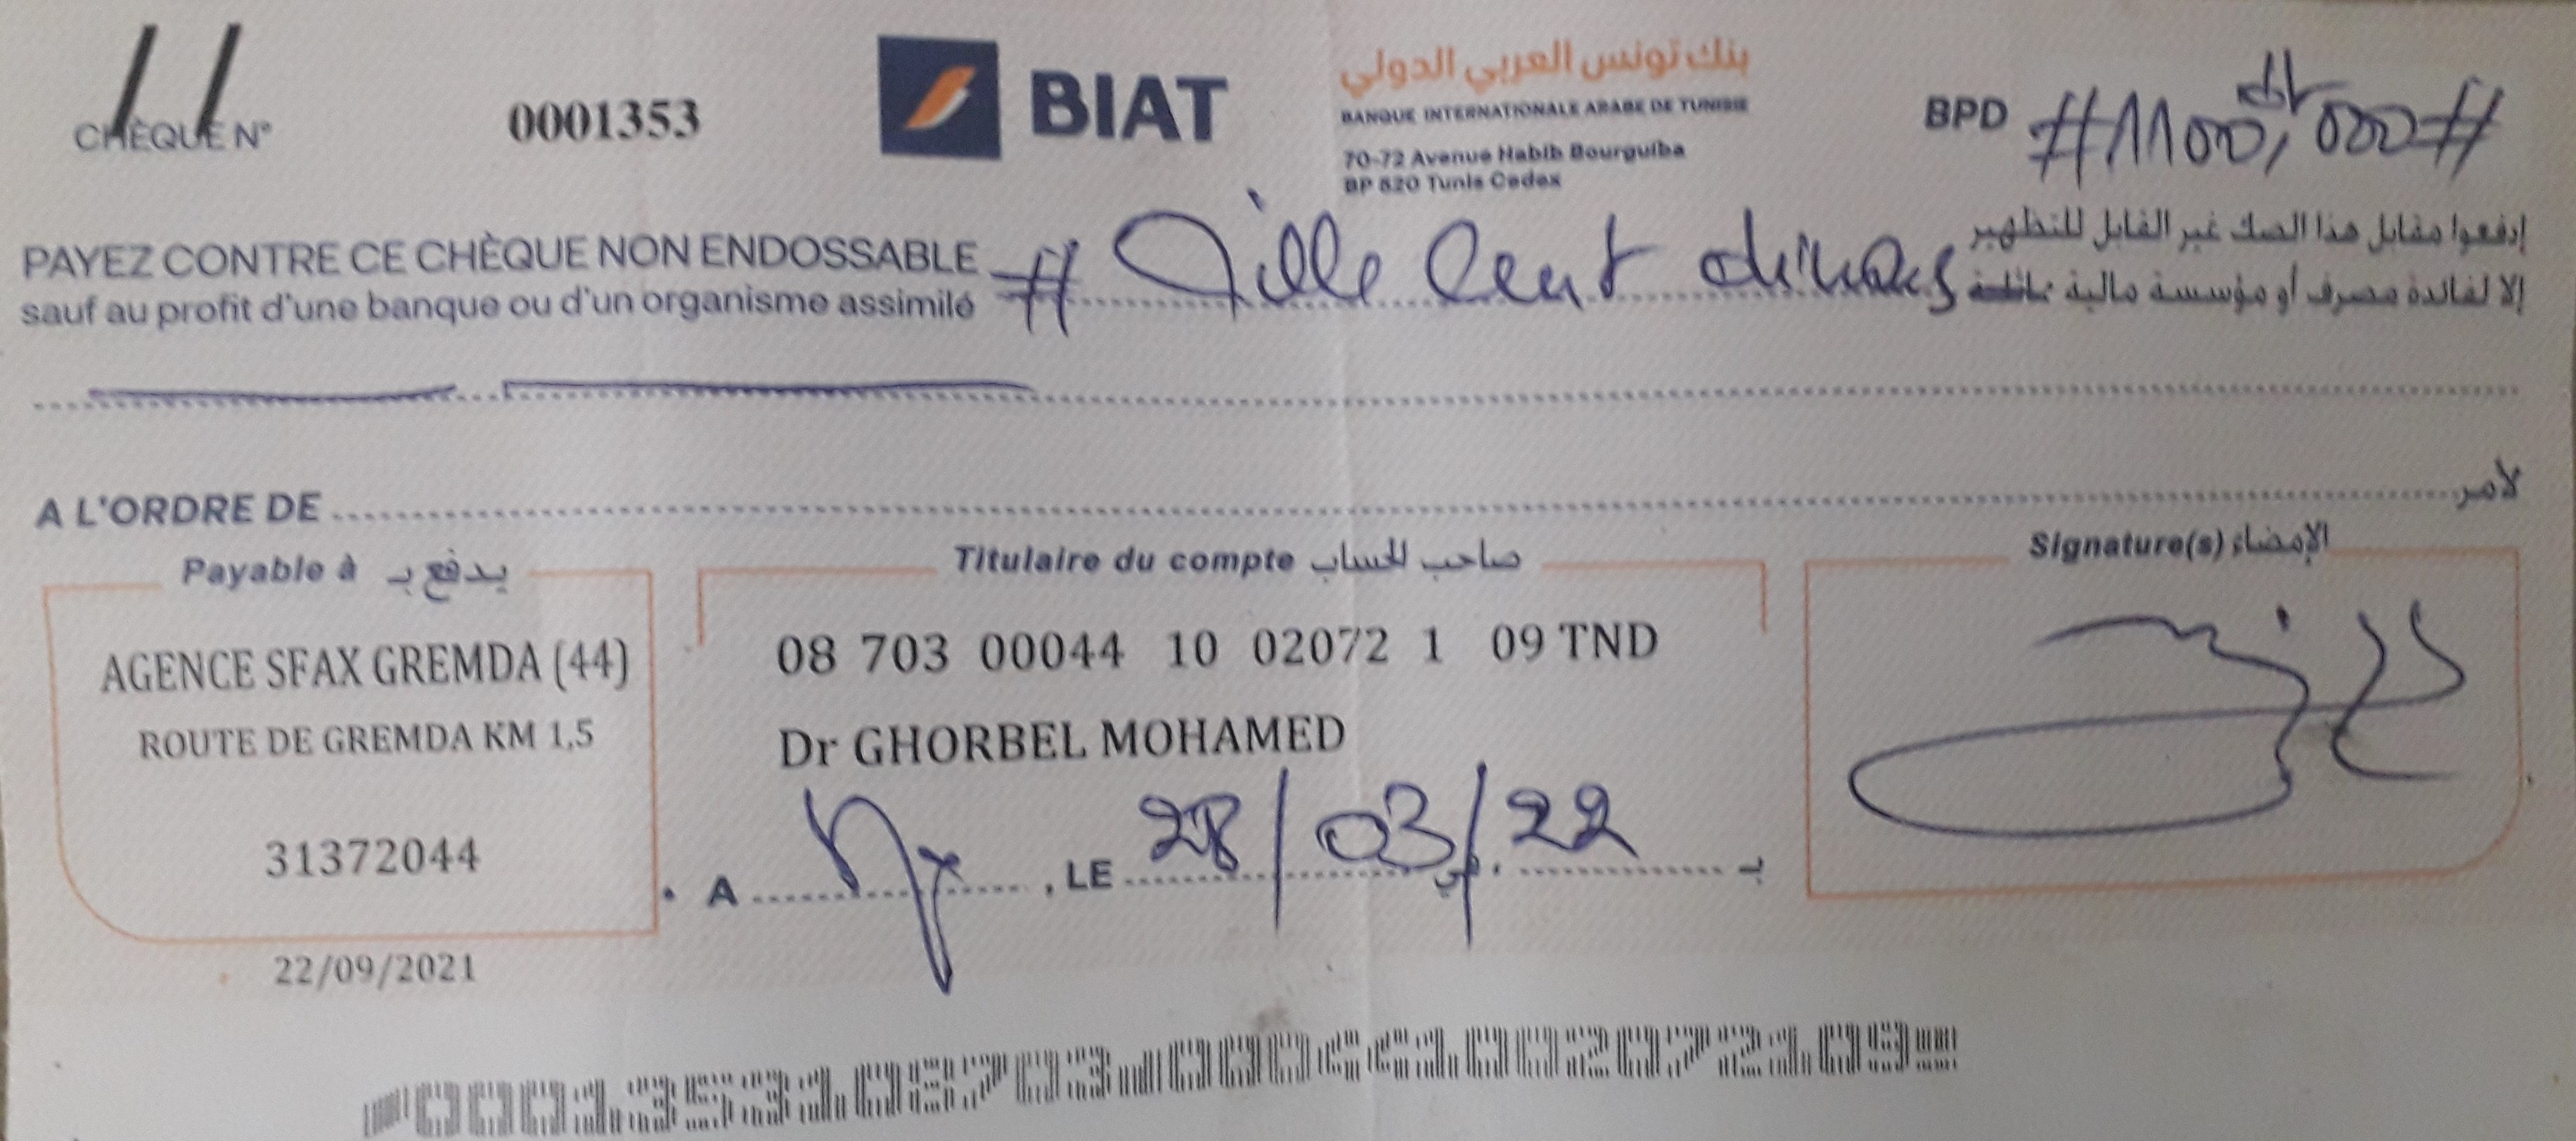 CHÈQUE N° 0001353
BIAT
بنك تونس العربي الدولي
BANQUE INTERNATIONALE ARABE DE TUNISIE
70-72 Avenue Habib Bourguiba
BP 520 Tunis Cedex
BPD #1100,000 dt#
PAYEZ CONTRE CE CHÈQUE NON ENDOSSABLE
sauf au profit d'une banque ou d'un organisme assimilé
# Mille Cent dinars
إدفعوا مقابل هذا الصك غير القابل للتظهير
إلا لفائدة مصرف أو مؤسسة مالية مماثلة
A L'ORDRE DE لأمر
Payable à يدفع بـ
AGENCE SFAX GREMDA (44)
ROUTE DE GREMDA KM 1,5
31372044
22/09/2021
Titulaire du compte صاحب الحساب
08 703 00044 10 02072 1 09 TND
Dr GHORBEL MOHAMED
A , LE 28/03/22 في بـ
Signature(s) الإمضاء
0001353 1 08703 000441002072109